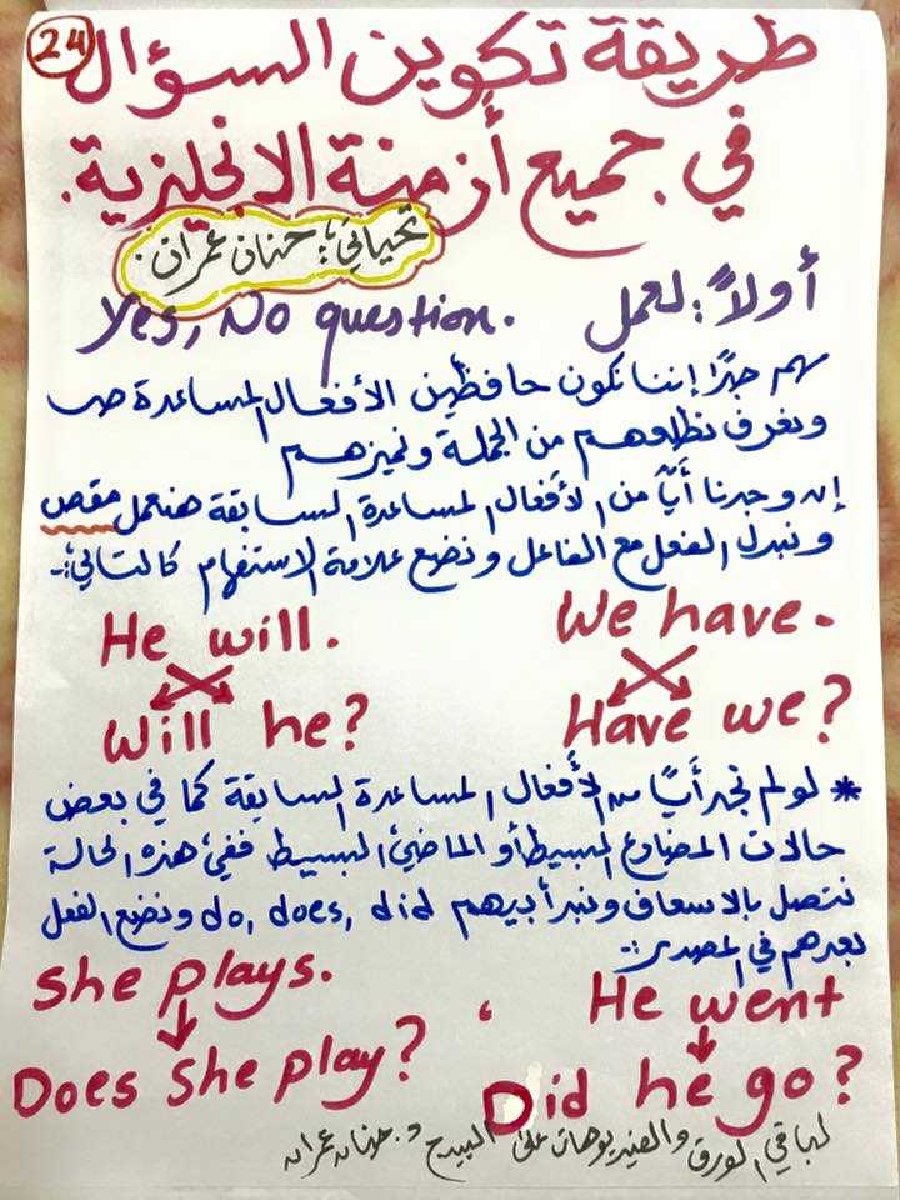 24
طريقة تكوين السؤال
في جميع أزمنة الانجلزية.
تحياتي؛ حنان عمران.
أولاً: لعمل
Yes, No question.
مهم جدًا إننا نكون حافظين الأفعال المساعدة صح
ونعرف نطلعهم من الجملة ونميزهم
إن وجدنا أيًا من الأفعال المساعدة السابقة هنعمل مقص
ونبدل الفعل مع الفاعل ونضع علامة الاستفهام كالتالي:-
He will. We have.
Will he? Have we?
* لو لم نجد أيًا من الأفعال المساعدة السابقة كما في بعض
حالات المضارع البسيط أو الماضي البسيط ففي هذه الحالة
نتصل بالاسعاف ونبدأ بيهم do, does, did ونضع الفعل
بعدهم في المصدر:-
She plays. ، He went
Does She play? Did he go?
لباقي الورق والفيديوهات على البيدج د. حنان عمران